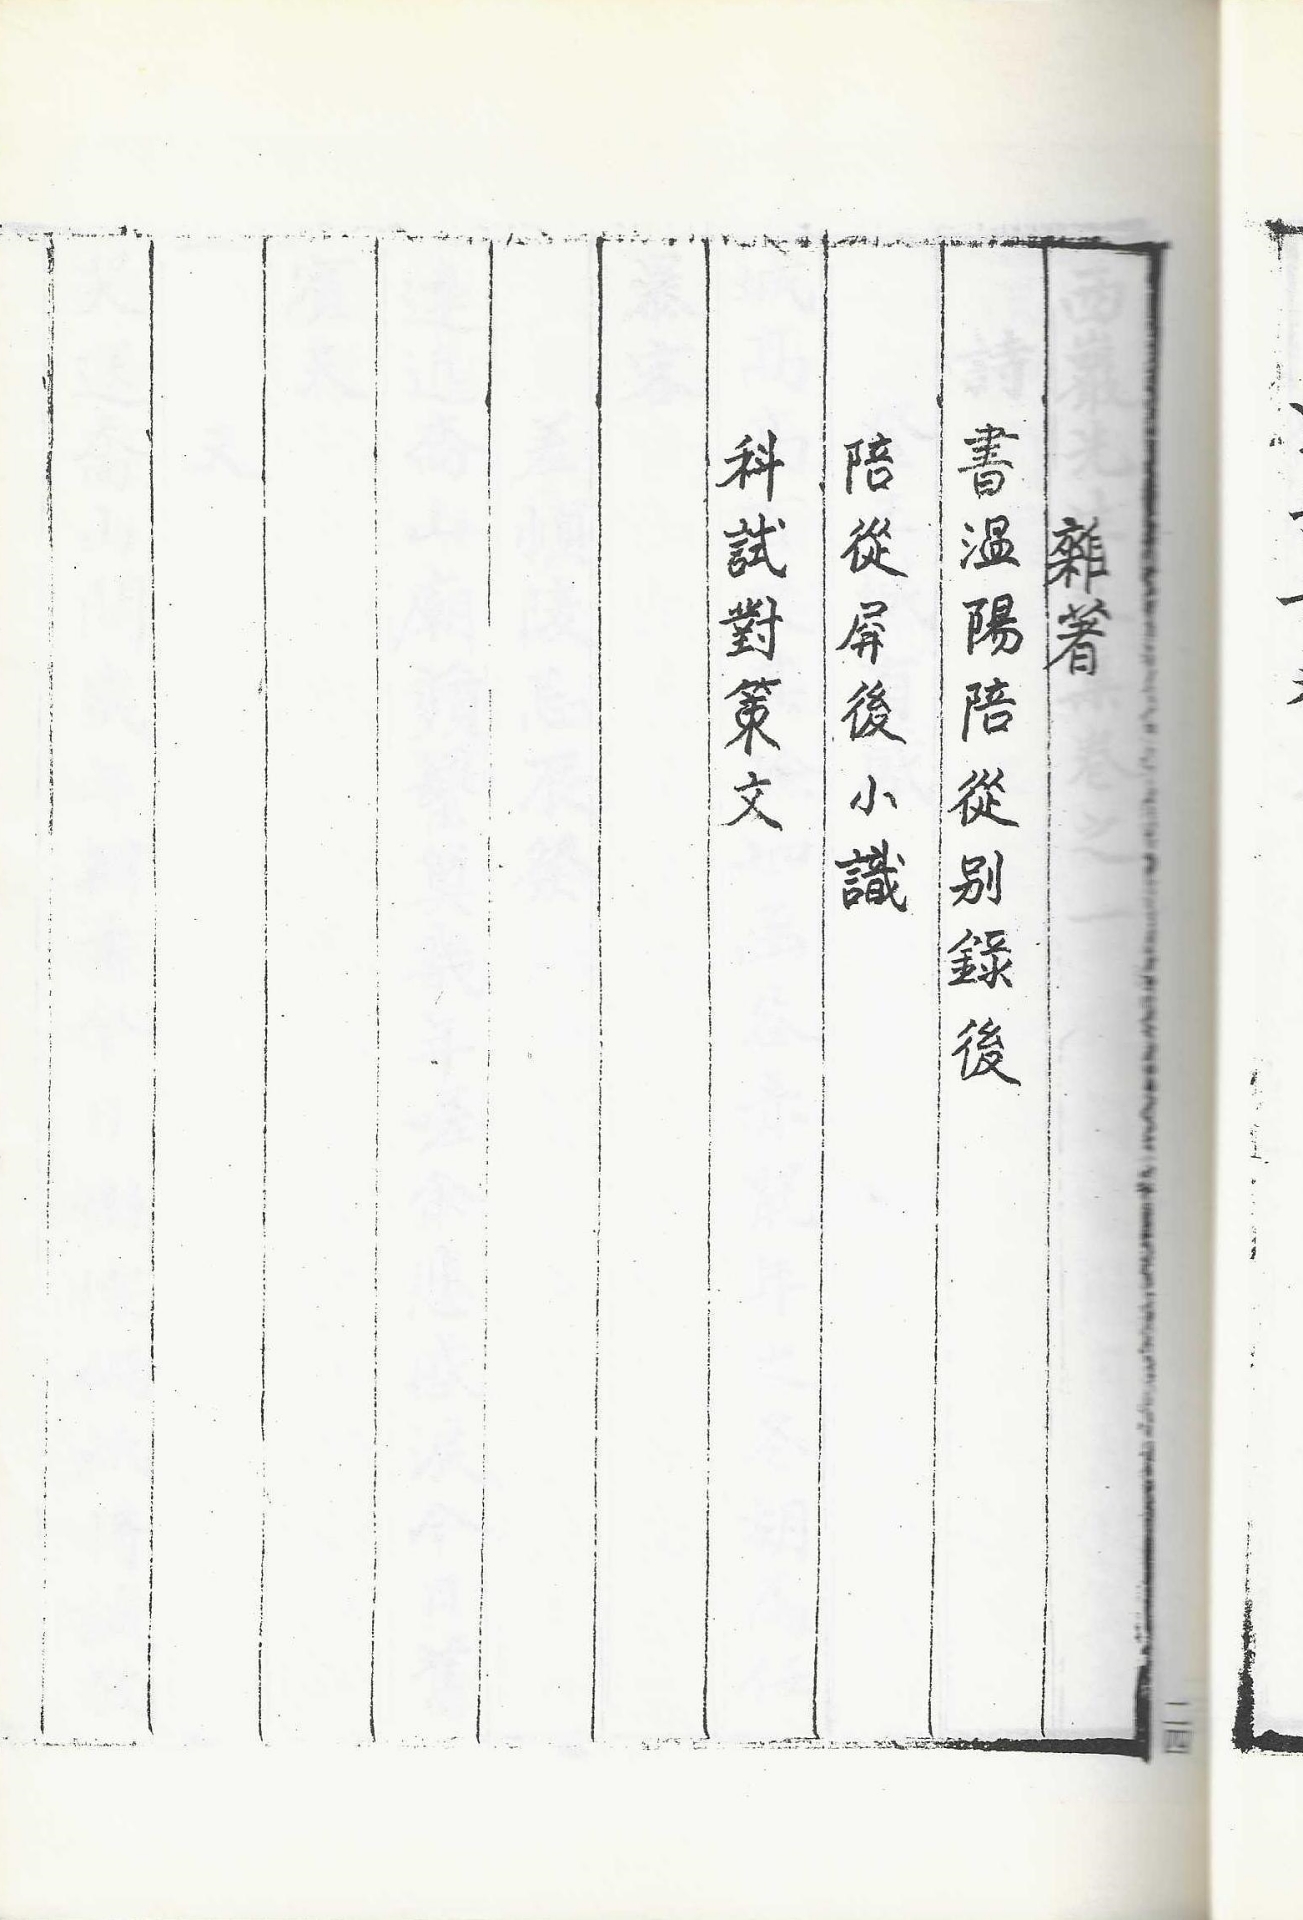 雜著
書溫陽陪從別錄後
陪從屛後小識
科試對策文
二四